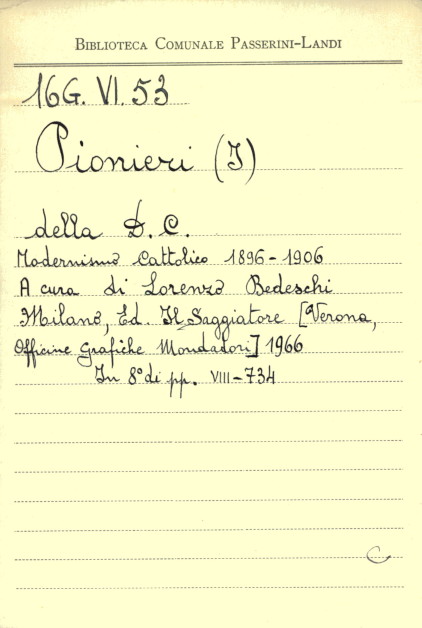 BIBLIOTECA COMUNALE PASSERINI-LANDI
16G. VI. 53
Pionieri (I)
della D. C.
Modernismo Cattolico 1896-1906
A cura di Lorenzo Bedeschi
Milano, Ed. Il Saggiatore [Verona,
Officine Grafiche Mondadori] 1966
In 8° di pp. VIII-734
C